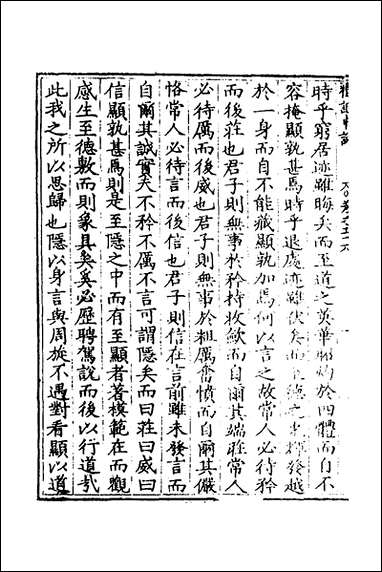 時乎窮居迹雖晦矣而至道之英華昭灼於四體而自不
容掩顯孰甚焉時乎退處迹雖伏矣而至德之光輝發越
於一身而自不能藏顯孰加焉何以言之故常人必待矜
而後莊也君子則無事於矜持收歛而自爾其端莊常人
必待厲而後威也君子則無事於粗厲奮憤而自爾其儼
恪常人必待言而後信也君子則信在言前雖未發言而
自爾其誠實矣不矜不厲不言可謂隱矣而曰莊曰威曰
信顯孰甚焉則是至隱之中而有至顯者著模範在而觀
感生至德敷而則象具矣奚必歷聘駕說而後以行道哉
此我之所以思歸也隱以身言與周旋不遇對看顯以道